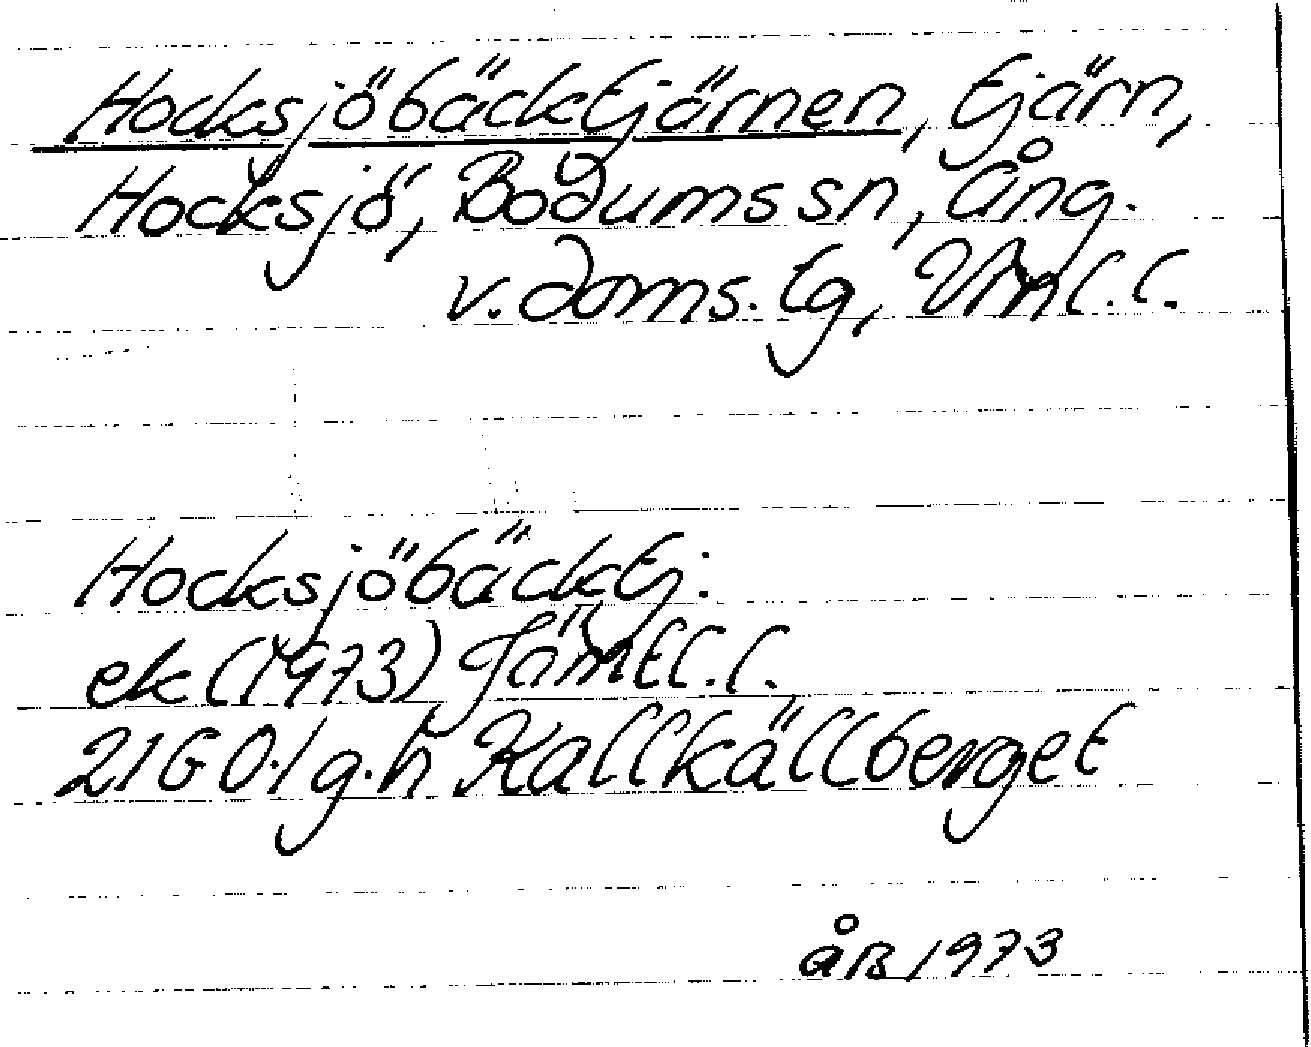 Hocksjöbäcktjärnen, tjärn,
Hocksjö, Bodums sn, Ång.
v. doms. tg, Vml. l.
Hocksjöbäcktj.
ek (1973) Jämtl. l.
21G 0-1 g.h Kallkällberget
åB 1973